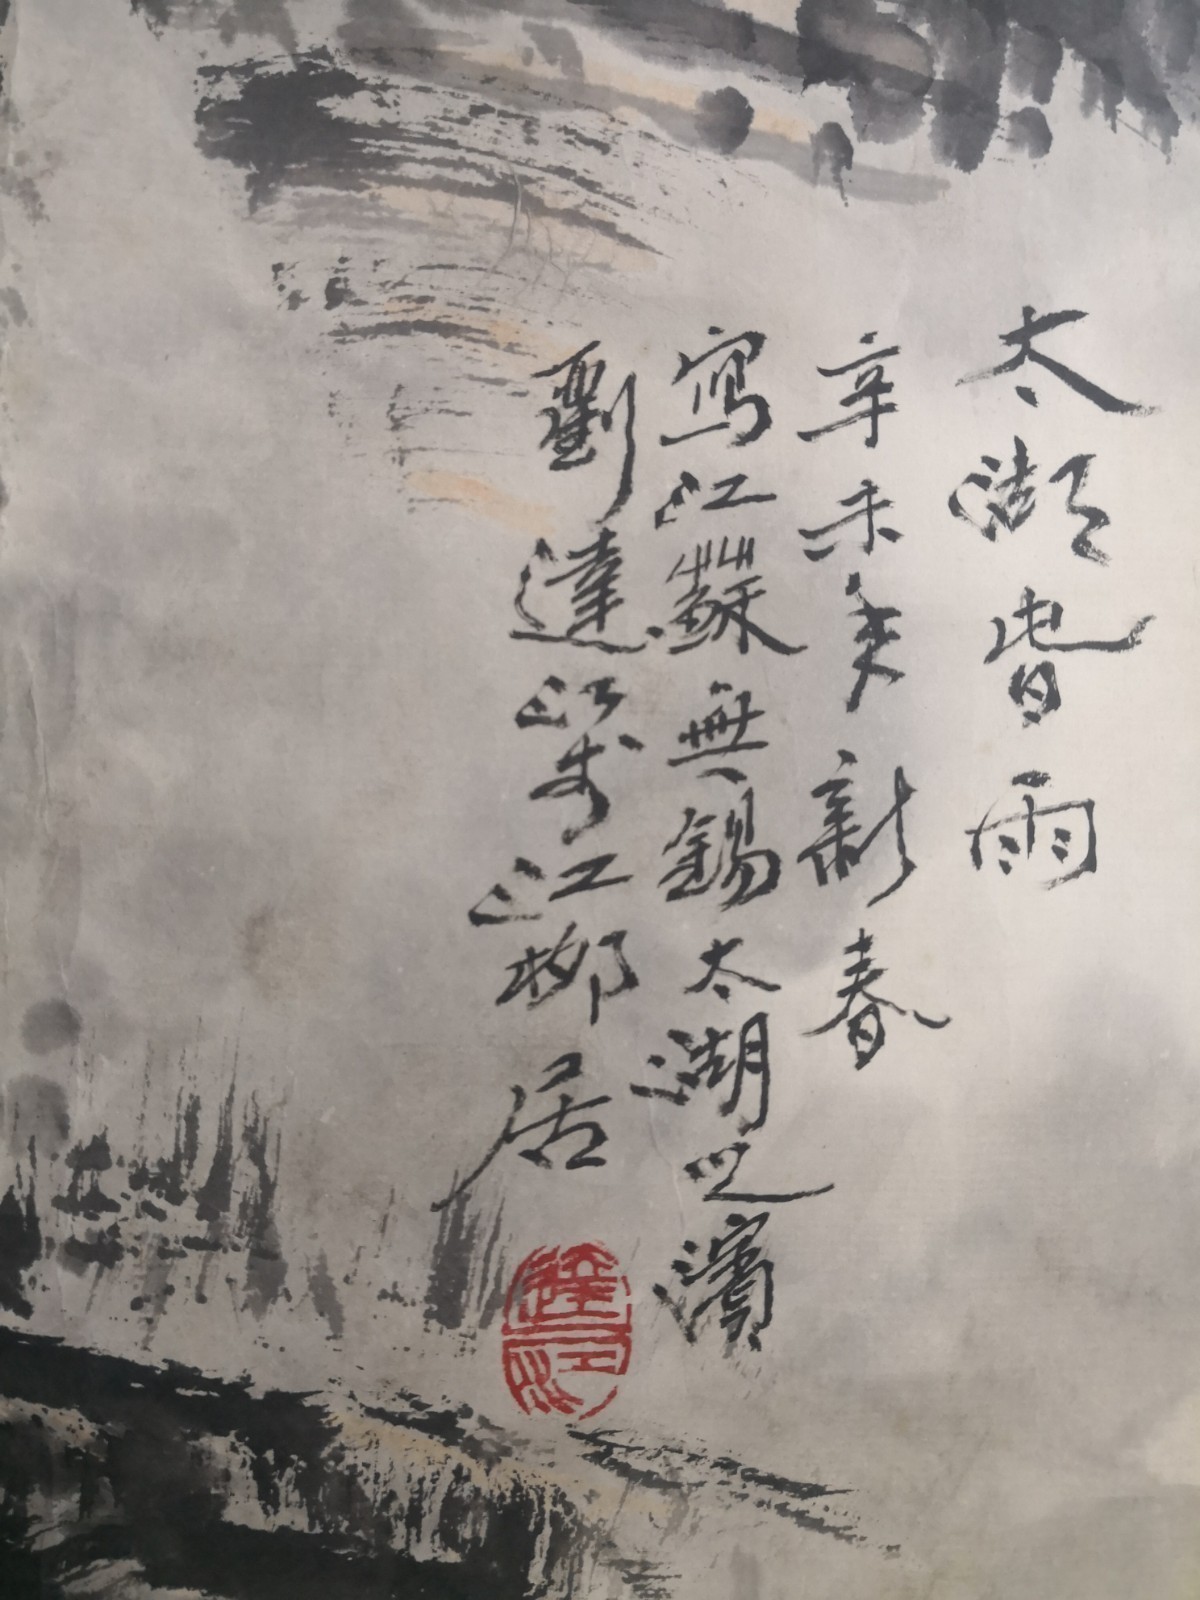 太湖旾雨
辛未年新春
寫江蘇無錫太湖之濱
劉達江於江柳居
達江